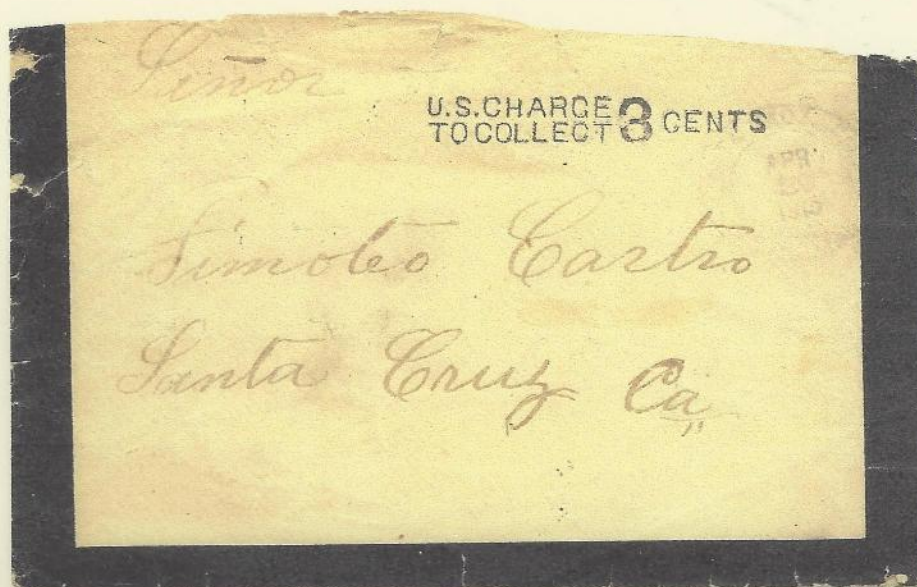 Señor
U.S. CHARGE
TO COLLECT 3 CENTS
Timoteo Castro
Santa Cruz Ca